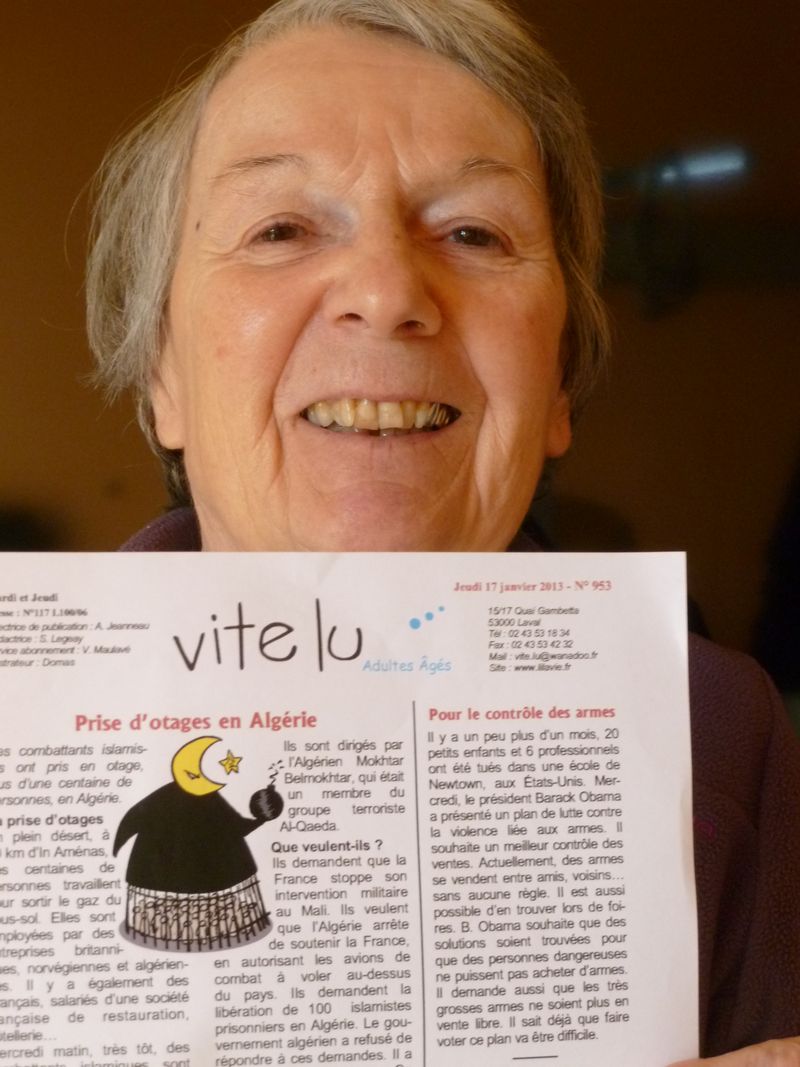 Jeudi 17 janvier 2013 - N° 953
ardi et Jeudi
esse : N°117 1.100/06
ectrice de publication : A. Jeanneau
dactrice : S. Legeay
rvice abonnement : V. Maulavé
strateur : Domas
vite lu
Adultes Âgés
15/17 Quai Gambetta
53000 Laval
Tél : 02 43 53 18 34
Fax : 02 43 53 42 32
Mail : vite.lu@wanadoo.fr
Site : www.lilavie.fr
Prise d'otages en Algérie
es combattants islamis-
s ont pris en otage,
us d'une centaine de
ersonnes, en Algérie.
a prise d'otages
n plein désert, à
km d'In Aménas,
es centaines de
ersonnes travaillent
our sortir le gaz du
ous-sol. Elles sont
mployées par des
ntreprises britanni-
ues, norvégiennes et algérien-
es. Il y a également des
ançais, salariés d'une société
ançaise de restauration,
ôtellerie…
ercredi matin, très tôt, des
mbattants islamiques sont
Ils sont dirigés par
l'Algérien Mokhtar
Belmokhtar, qui était
un membre du
groupe terroriste
Al-Qaeda.
Que veulent-ils ?
Ils demandent que la
France stoppe son
intervention militaire
au Mali. Ils veulent
que l'Algérie arrête
de soutenir la France,
en autorisant les avions de
combat à voler au-dessus
du pays. Ils demandent la
libération de 100 islamistes
prisonniers en Algérie. Le gou-
vernement algérien a refusé de
répondre à ces demandes. Il a
Pour le contrôle des armes
Il y a un peu plus d'un mois, 20
petits enfants et 6 professionnels
ont été tués dans une école de
Newtown, aux États-Unis. Mer-
credi, le président Barack Obama
a présenté un plan de lutte contre
la violence liée aux armes. Il
souhaite un meilleur contrôle des
ventes. Actuellement, des armes
se vendent entre amis, voisins…
sans aucune règle. Il est aussi
possible d'en trouver lors de foi-
res. B. Obama souhaite que des
solutions soient trouvées pour
que des personnes dangereuses
ne puissent pas acheter d'armes.
Il demande aussi que les très
grosses armes ne soient plus en
vente libre. Il sait déjà que faire
voter ce plan va être difficile.